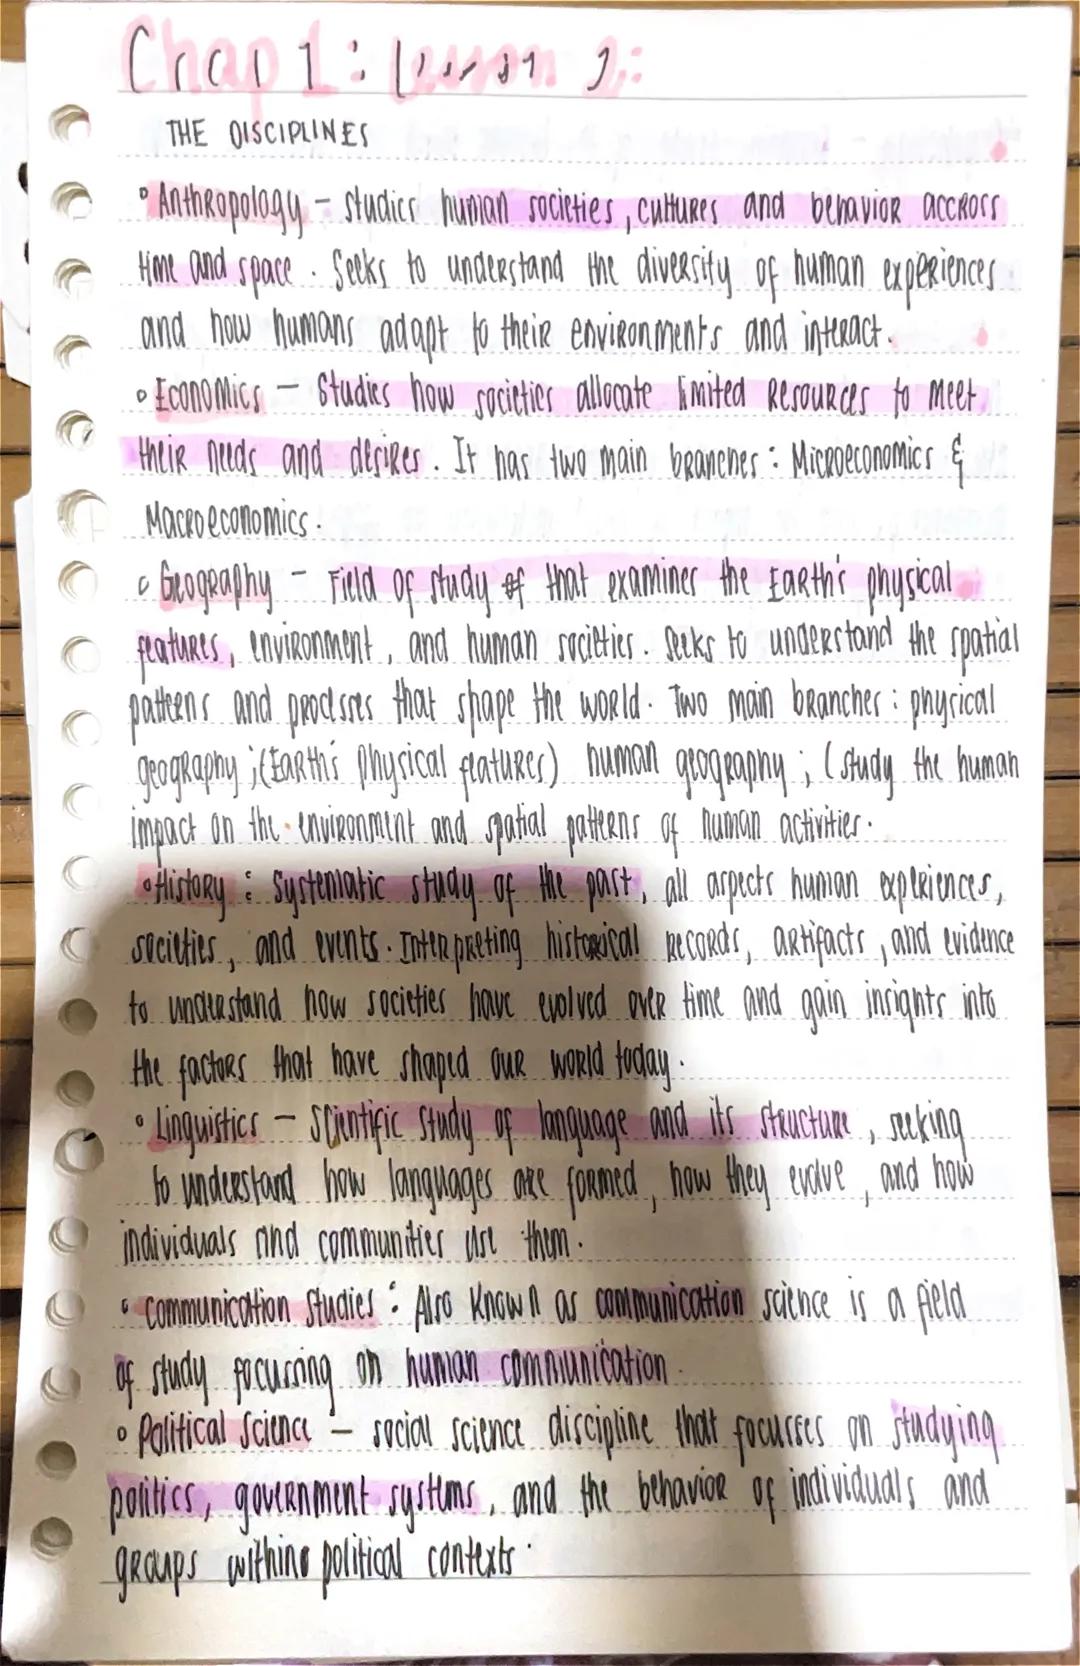 Chap 1: Lesson 2:
THE DISCIPLINES
° Anthropology – studies human societies, cultures and behavior accross
time and space. Seeks to understand the diversity of human experiences
and how humans adapt to their environments and interact.
° Economics – Studies how societies allocate limited Resources to meet
their needs and desires. It has two main branches: Microeconomics &
Macroeconomics.
° Geography – Field of study of that examines the Earth's physical
features, environment, and human societies. Seeks to understand the spatial
patterns and processes that shape the world. Two main branches: physical
geography ;(Earth's Physical features) human geography ; (study the human
impact on the environment and spatial patterns of human activities.
° History : Systematic study of the past, all aspects human experiences,
societies, and events. Interpreting historical Records, artifacts, and evidence
to understand how societies have evolved over time and gain insights into
the factors that have shaped our world today.
° Linguistics – Scientific Study of language and its structure, seeking
to understand how languages are formed, how they evolve, and how
individuals and communities use them.
° Communication Studies : Also Known as communication science is a field
of study focussing on human communication.
° Political Science – social science discipline that focusses on studying
politics, government systems, and the behavior of individuals and
groups within political contexts.